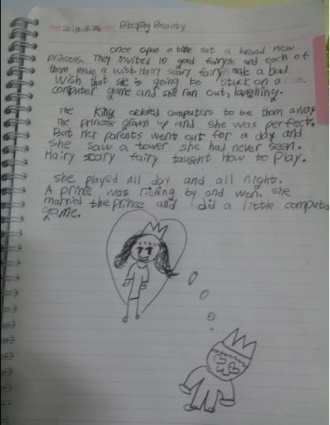 Sleeping Beauty
once open a time sat a brand new
princess. They invited 12 good fairys and each of
them made a wish. Hairy scary fairy made a bad
wish that she is going to stuck on a
computer game and she ran out, laughing.
The King orderd computers to be them away
The princess grown up and she was perfect.
But her parents went out for a day and
she saw a tower she had never seen.
Hairy scary fairy taught How to play.
she played all day and all night.
A prince was riding by and won. she
married the prince and did a little computer
game.